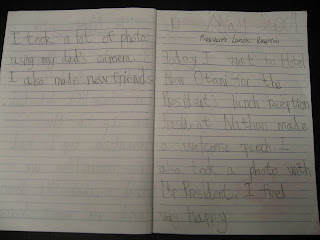 I took a lot of photo
using my dad's camera.
I also made new friends
President's Lunch Reception
Today I went to Hotel
New Otani for the
President's lunch reception
President Nathan made
a welcome speech. I
also took a photo with
Mr President. I feel
very happy